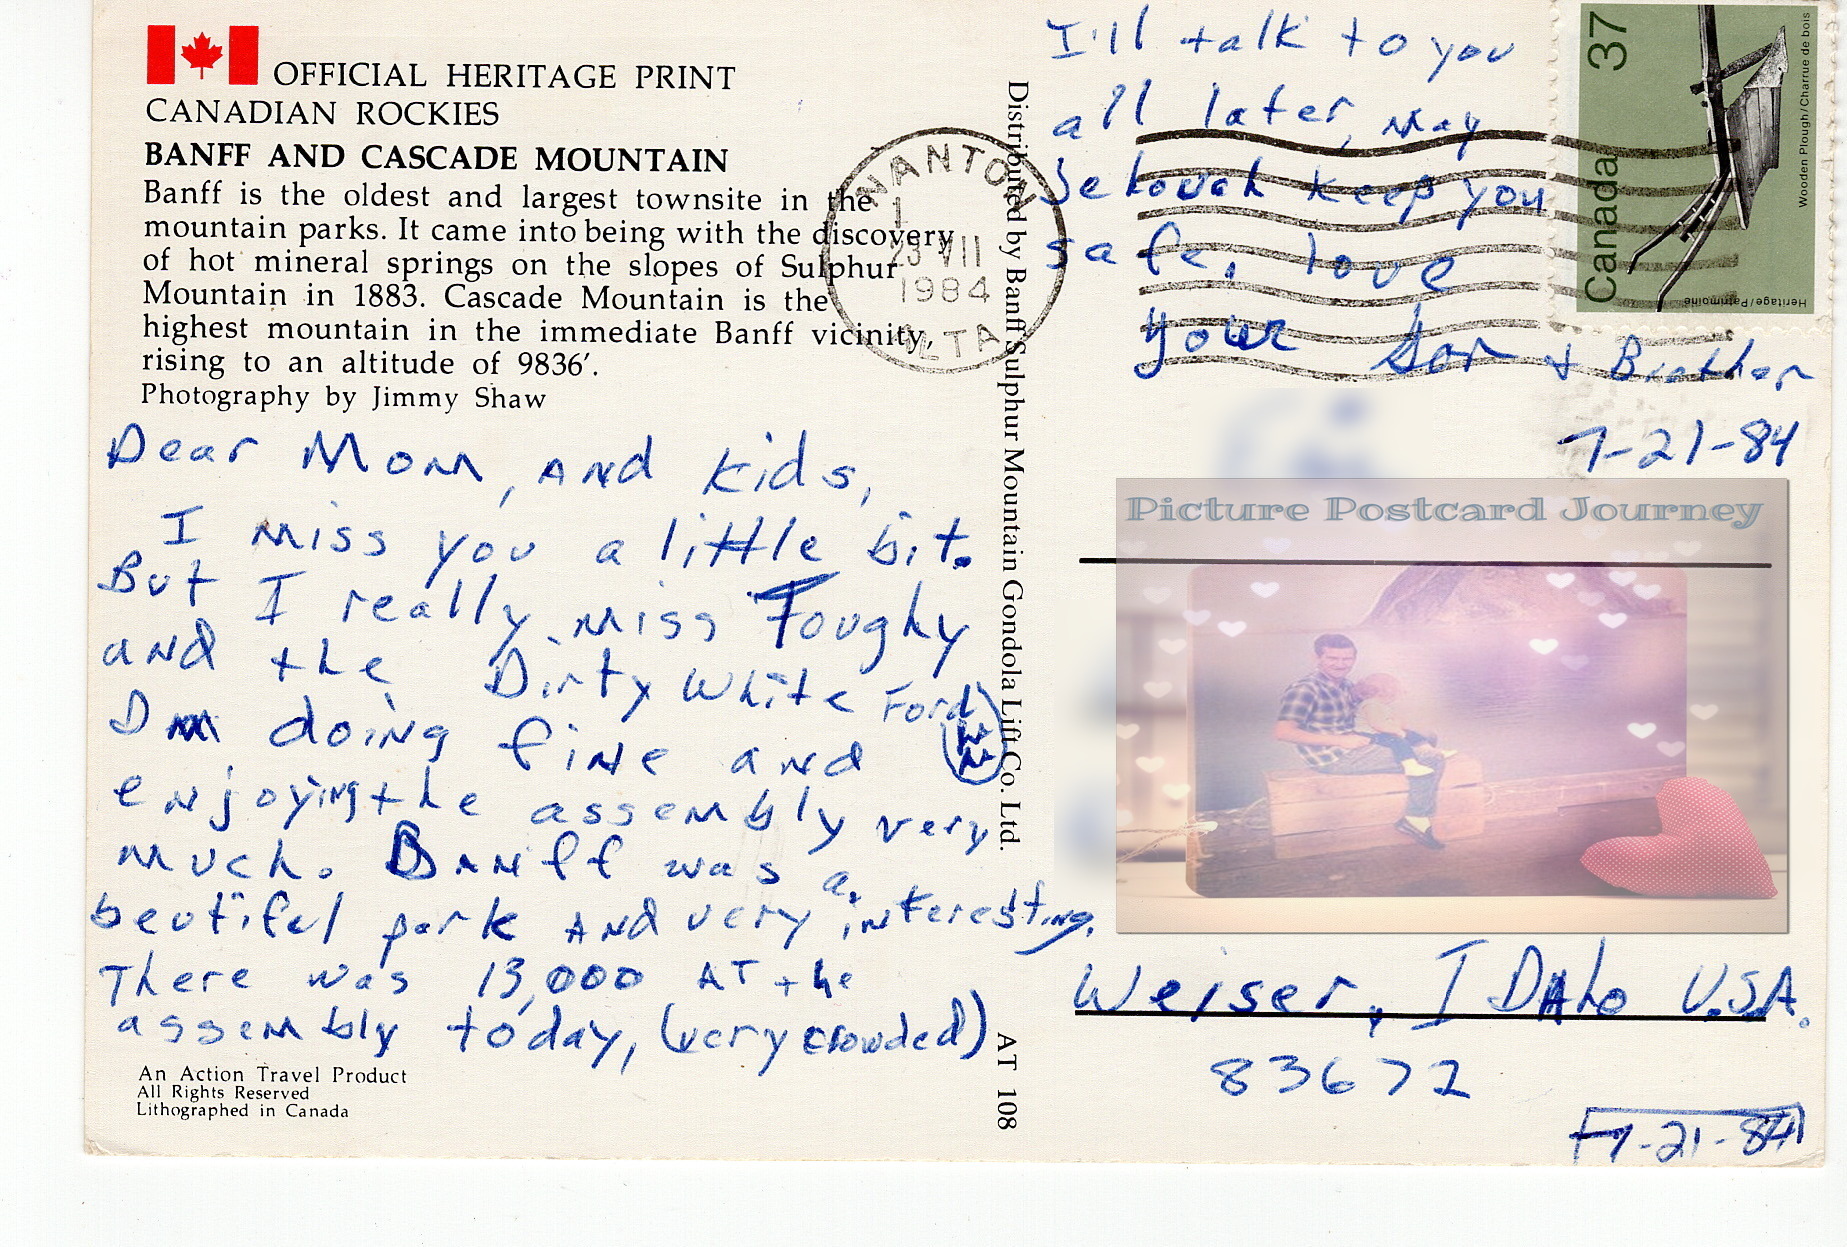 OFFICIAL HERITAGE PRINT
CANADIAN ROCKIES
BANFF AND CASCADE MOUNTAIN
Banff is the oldest and largest townsite in the
mountain parks. It came into being with the discovery
of hot mineral springs on the slopes of Sulphur
Mountain in 1883. Cascade Mountain is the
highest mountain in the immediate Banff vicinity,
rising to an altitude of 9836'.
Photography by Jimmy Shaw
Dear Mom, and kids,
I miss you a little bit.
But I really miss Toughy
and the Dirty White Ford
I'm doing fine and
enjoying the assembly very
much. Banff was a
beutiful park and very interesting.
There was 13,000 AT the
assembly today, (very crowded)
An Action Travel Product
All Rights Reserved
Lithographed in Canada
Distributed by Banff Sulphur Mountain Gondola Lift Co. Ltd.
AT 108
NANTON
1
23 VII
1984
ALTA
I'll talk to you
all later, may
Jehovah keep you
safe, love
your Son & Brother
7-21-84
Canada 37
Wooden Plough/Charrue de bois
Heritage/Patrimoine
Picture Postcard Journey
Weiser, IDAho U.S.A.
83672
7-21-84